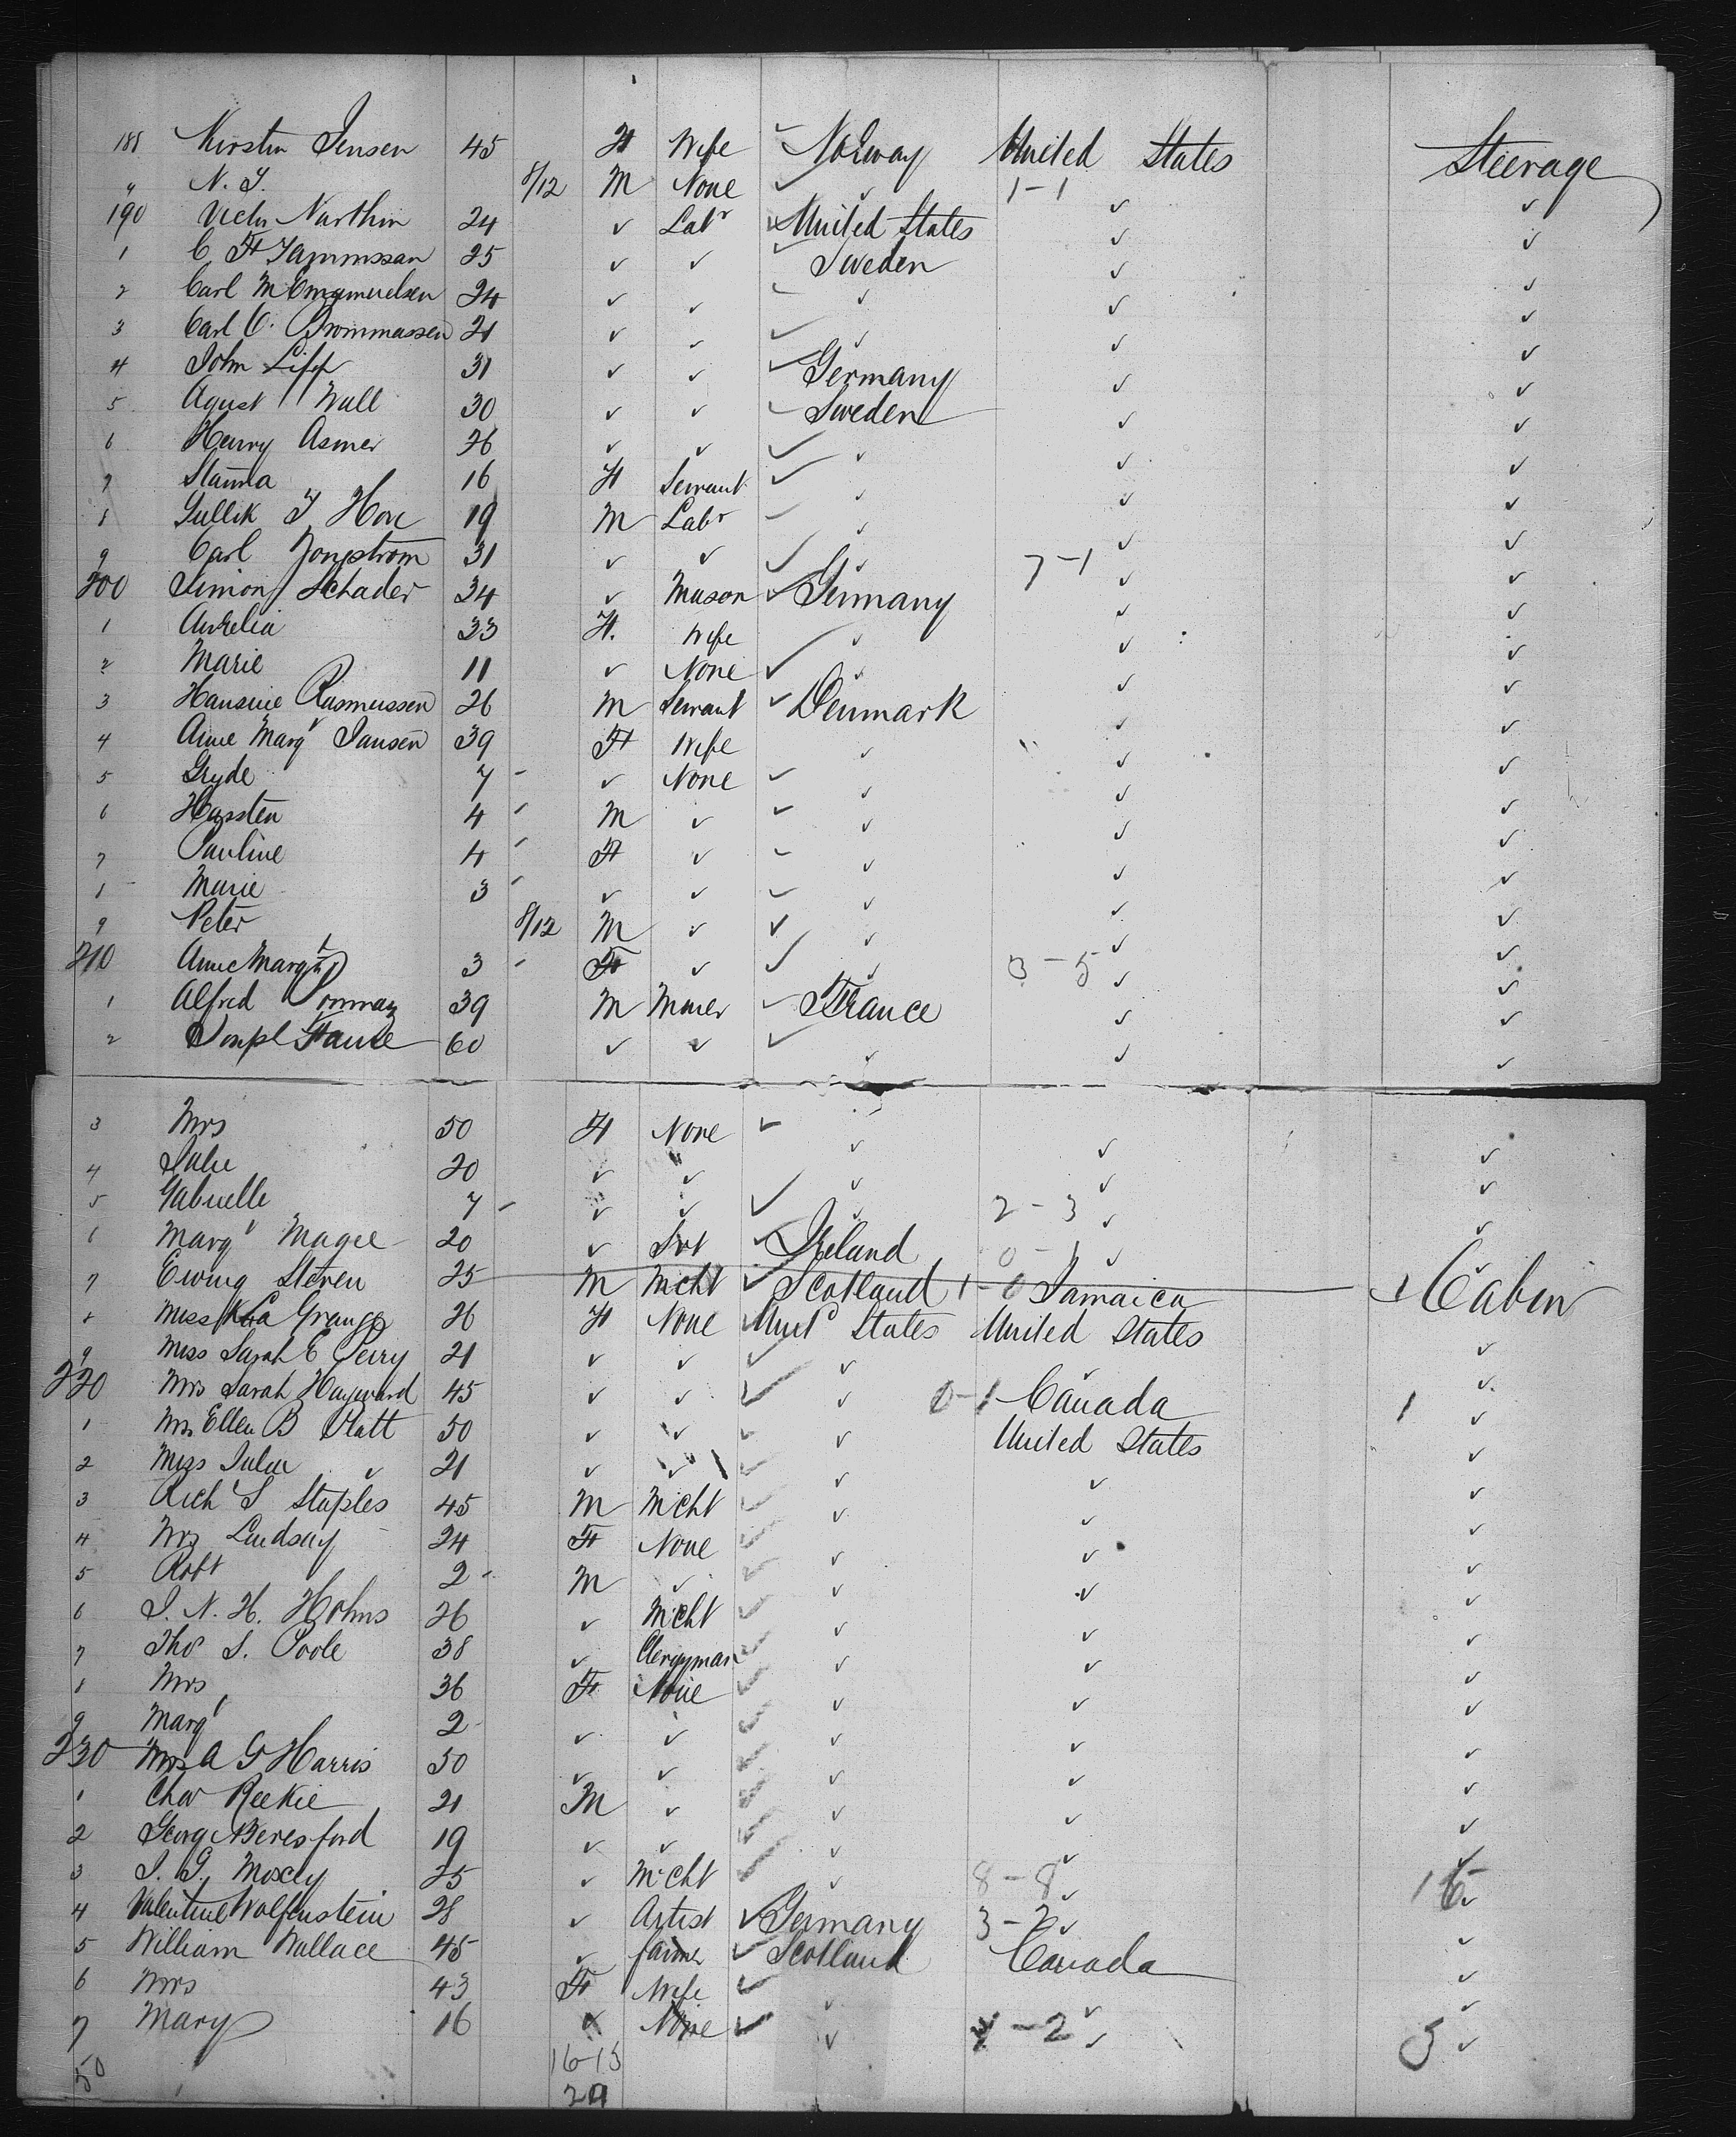 188 Kirstin Jensen 45 F Wife ✓ Norway United States Steerage
" N. J. 8/12 M None ✓ ✓ 1-1 ✓ ✓
190 Victor Narthin 24 ✓ Labr ✓ United States ✓ ✓
1 C. F. 25 ✓ ✓ ✓ Sweden ✓ ✓
2 Carl M Emanuelsen 24 ✓ ✓ ✓ ✓ ✓ ✓
3 Carl C. Brommassen 21 ✓ ✓ ✓ ✓ ✓ ✓
4 John Lipp 31 ✓ ✓ ✓ Germany ✓ ✓
5 Agust Wall 30 ✓ ✓ ✓ Sweden ✓ ✓
6 Henry Asmer 26 ✓ ✓ ✓ ✓ ✓ ✓
7 Hanna 16 F Servant ✓ ✓ ✓ ✓
8 Gullik J Hove 19 M Labr ✓ ✓ ✓ ✓
9 Carl Jongstrom 31 ✓ ✓ ✓ ✓ 7-1 ✓ ✓
200 Simon Schader 34 ✓ Mason ✓ Germany ✓ ✓
1 Aurelia 33 F. Wife ✓ ✓ ✓ ✓
2 Marie 11 ✓ None ✓ ✓ ✓ ✓
3 Hansine Rasmussen 26 M Servant ✓ Denmark ✓ ✓
4 Anne Margt Jansen 39 F Wife ✓ ✓ ✓
5 Gryde 7 - ✓ None ✓ ✓ ✓ ✓
6 Karsten 4 - M ✓ ✓ ✓ ✓ ✓
7 Pauline 4 - F ✓ ✓ ✓ ✓ ✓
8 Marie 3 - ✓ ✓ ✓ ✓ ✓ ✓
9 Peter 8/12 M ✓ ✓ ✓ ✓ ✓
210 Anne Margt 3 - F ✓ ✓ ✓ 3-5 ✓ ✓
1 Alfred 39 M Miner ✓ France ✓ ✓
2 60 ✓ ✓ ✓ ✓ ✓ ✓
3 Mrs 50 F None ✓ ✓ ✓ ✓
4 Julie 20 ✓ ✓ ✓ ✓ ✓
5 Gabrielle 7 - ✓ ✓ ✓ ✓ 2-3 ✓ ✓
6 Margt Magee 20 ✓ Svt ✓ Ireland 0-1 ✓ ✓
7 Ewing Steven 25 M Mcht ✓ Scotland 1-0 Jamaica Cabin
8 Miss La Grange 26 F None ✓ Unitd States United States ✓
9 Miss Sarah E Perry 21 ✓ ✓ ✓ ✓ ✓ ✓
220 Mrs Sarah Hayward 45 ✓ ✓ ✓ ✓ 0-1 Canada 1 ✓
1 Mrs Ellen B Platt 50 ✓ ✓ ✓ ✓ United States ✓
2 Miss Julia ✓ 21 ✓ ✓ ✓ ✓ ✓ ✓
3 Rich S Staples 45 M Mcht ✓ ✓ ✓ ✓
4 Mrs Lindsay 24 F None ✓ ✓ ✓ ✓
5 Robt 2 - M ✓ ✓ ✓ ✓ ✓
6 J. N. H. Hohns 26 ✓ Mcht ✓ ✓ ✓ ✓
7 Thos S. Poole 38 ✓ Clergyman ✓ ✓ ✓ ✓
8 Mrs 36 F None ✓ ✓ ✓ ✓
9 Margt 2 - ✓ ✓ ✓ ✓ ✓ ✓
230 Mrs A G Harris 50 ✓ ✓ ✓ ✓ ✓ ✓
1 Chas Reekie 21 M ✓ ✓ ✓ ✓ ✓
2 George Beresford 19 ✓ ✓ ✓ ✓ ✓ ✓
3 J. G. Moxely 25 ✓ Mcht ✓ ✓ 8-8 ✓ 15 ✓
4 Valentine Wolfenstein 28 ✓ Artist ✓ Germany 3-2 ✓ ✓
5 William Wallace 45 ✓ Farmer ✓ Scotland Canada ✓
6 Mrs 43 F Wife ✓ ✓ ✓ ✓
7 Mary 16 ✓ None ✓ ✓ 1-2 ✓ 5 ✓
50 16-15
29